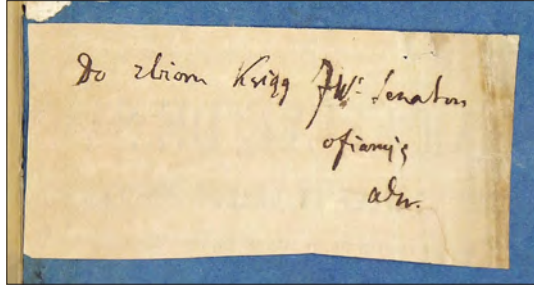 Do zbioru Książg JWº Senatora
ofiaruję
adw.